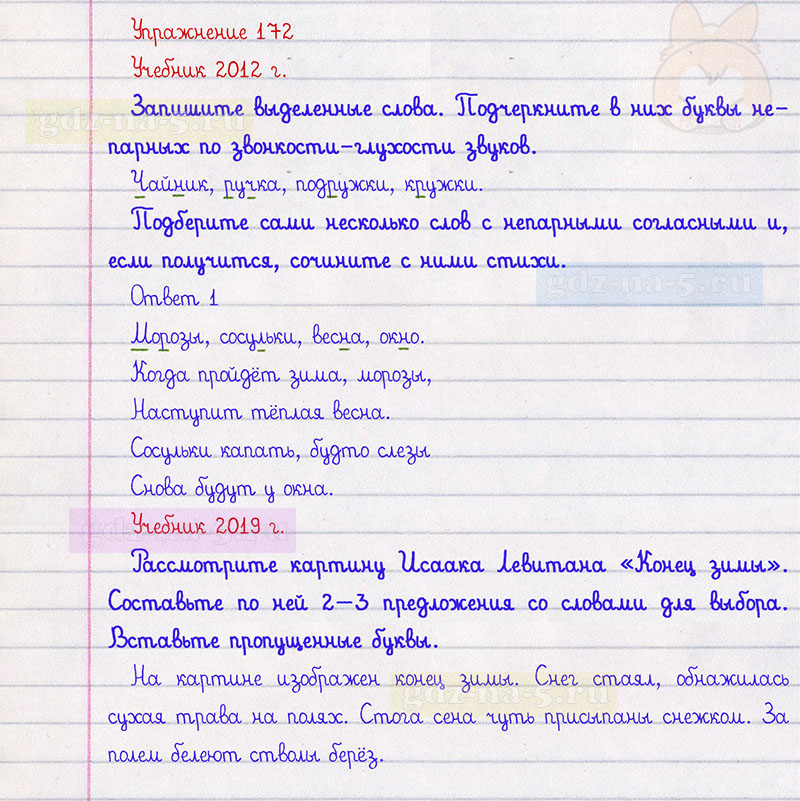 Упражнение 172
Учебник 2012 г.
Запишите выделенные слова. Подчеркните в них буквы не-
парных по звонкости-глухости звуков.
Чайник, ручка, подружки, кружки.
Подберите сами несколько слов с непарными согласными и,
если получится, сочините с ними стихи.
Ответ 1
Морозы, сосульки, весна, окно.
Когда пройдёт зима, морозы,
Наступит тёплая весна.
Сосульки капать, будто слезы
Снова будут у окна.
Учебник 2019 г.
Рассмотрите картину Исаака Левитана «Конец зимы».
Составьте по ней 2–3 предложения со словами для выбора.
Вставьте пропущенные буквы.
На картине изображен конец зимы. Снег стаял, обнажилась
сухая трава на полях. Стога сена чуть присыпаны снежком. За
полем белеют стволы берёз.
gdz-na-5.ru
gdz-na-5.ru
gdz-na-5.ru
gdz-na-5.ru